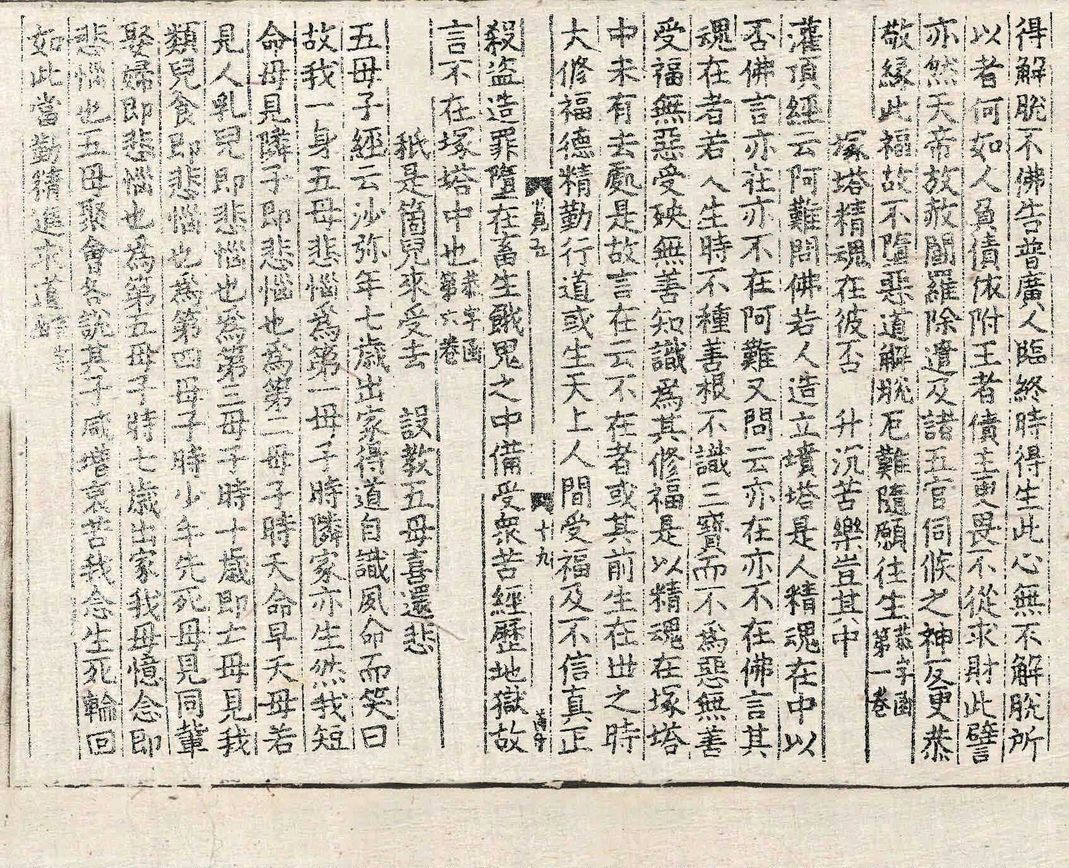 得解脫不佛告普廣人臨終時得生此心無不解脫所
以者何如人負債依附王者債主更畏不從求財此譬
亦然天帝放赦閻羅除遣及諸五官伺候之神反更恭
敬緣此福故不墮惡道解脫厄難隨願往生恭字函第一卷
塚塔精魂在彼否　升沉苦樂豈其中
灌頂經云阿難問佛若人造立墳塔是人精魂在中以
否佛言亦在亦不在阿難又問云亦在亦不在佛言其
魂在者若人生時不種善根不識三寶而不為惡無善
受福無惡受殃無善知識為其修福是以精魂在塚塔
中未有去處是故言在云不在者或其前生在世之時
大修福德精勤行道或生天上人間受福及不信真正
十九
殺盜造罪墮在畜生餓鬼之中備受眾苦經歷地獄故
言不在塚塔中也恭字函第六卷
秖是箇兒來受去　誤教五母喜還悲
五母子經云沙弥年七歲出家得道自識夙命而笑曰
故我一身五母悲惱為第一母子時隣家亦生然我短
命母見隣子即悲惱也為第二母子時夭命早夭母若
見人乳兒即悲惱也為第三母子時十歲即亡母見我
類兒食即悲惱也為第四母子時少年先死母見同輩
娶婦即悲惱也為第五母子時七歲出家我母憶念即
悲惱也五母聚會各說其子咸增哀苦我念生死輪回
如此當勤精進求道